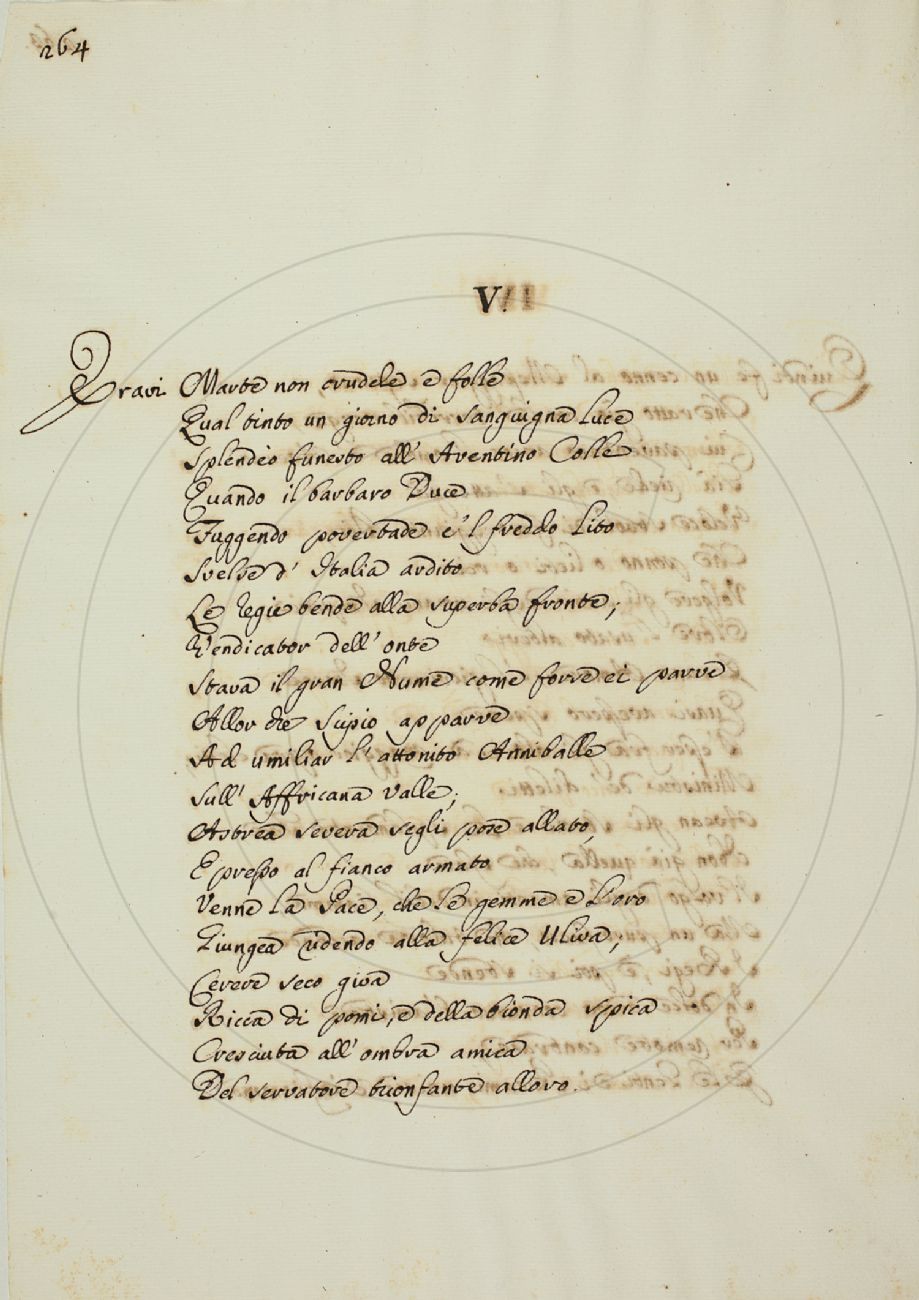 264
V.
Eravi Marte non crudele e folle
Qual tinto un giorno di sanguigna luce
Splendeo funesto all' Aventino Colle
Quando il barbaro Duce
Fuggendo povertade e 'l freddo lito
Svelse d' Italia ardito
Le regie bende alla superba fronte;
Vendicator dell' onte
Stava il gran Nume come forse ei parve
Allor che Scipio apparve
Ad umiliar l' attonito Anniballe
Sull' Affricana Valle;
Astrea severa segli pose allato,
E presso al fianco armato
Venne la Pace, che le gemme e l'oro
Giungea ridendo alla felice Uliva;
Cerere seco giva
Ricca di pomi, e della bionda spica
Cresciuta all' ombra amica
Del servatore trionfante alloro.